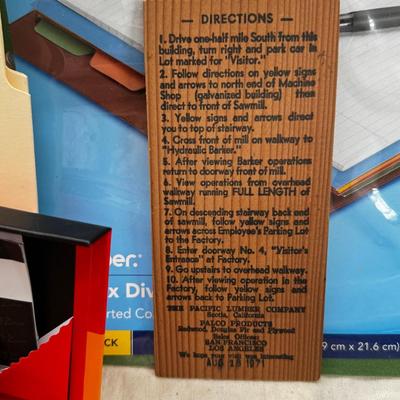 — DIRECTIONS —
1. Drive one-half mile South from this
building, turn right and park car in
Lot marked for "Visitor."
2. Follow directions on yellow signs
and arrows to north end of Machine
Shop (galvanized building) then
direct to front of Sawmill.
3. Yellow signs and arrows direct
you to top of stairway.
4. Cross front of mill on walkway to
"Hydraulic Barker."
5. After viewing Barker operations
return to doorway front of mill.
6. View operations from overhead
walkway running FULL LENGTH of
Sawmill.
7. On descending stairway back end
of sawmill, follow yellow signs and
arrows across Employee's Parking Lot
to the Factory.
8. Enter doorway No. 4, "Visitor's
Entrance" at Factory.
9. Go upstairs to overhead walkway.
10. After viewing operation in the
Factory, follow yellow signs and
arrows back to Parking Lot.
THE PACIFIC LUMBER COMPANY
Scotia, California
PALCO PRODUCTS
Redwood, Douglas Fir and Plywood
Sales Offices:
SAN FRANCISCO
LOS ANGELES
We hope your visit was interesting
AUG 18 1971
per:
x Div
rted Co
CK
9 cm x 21.6 cm)